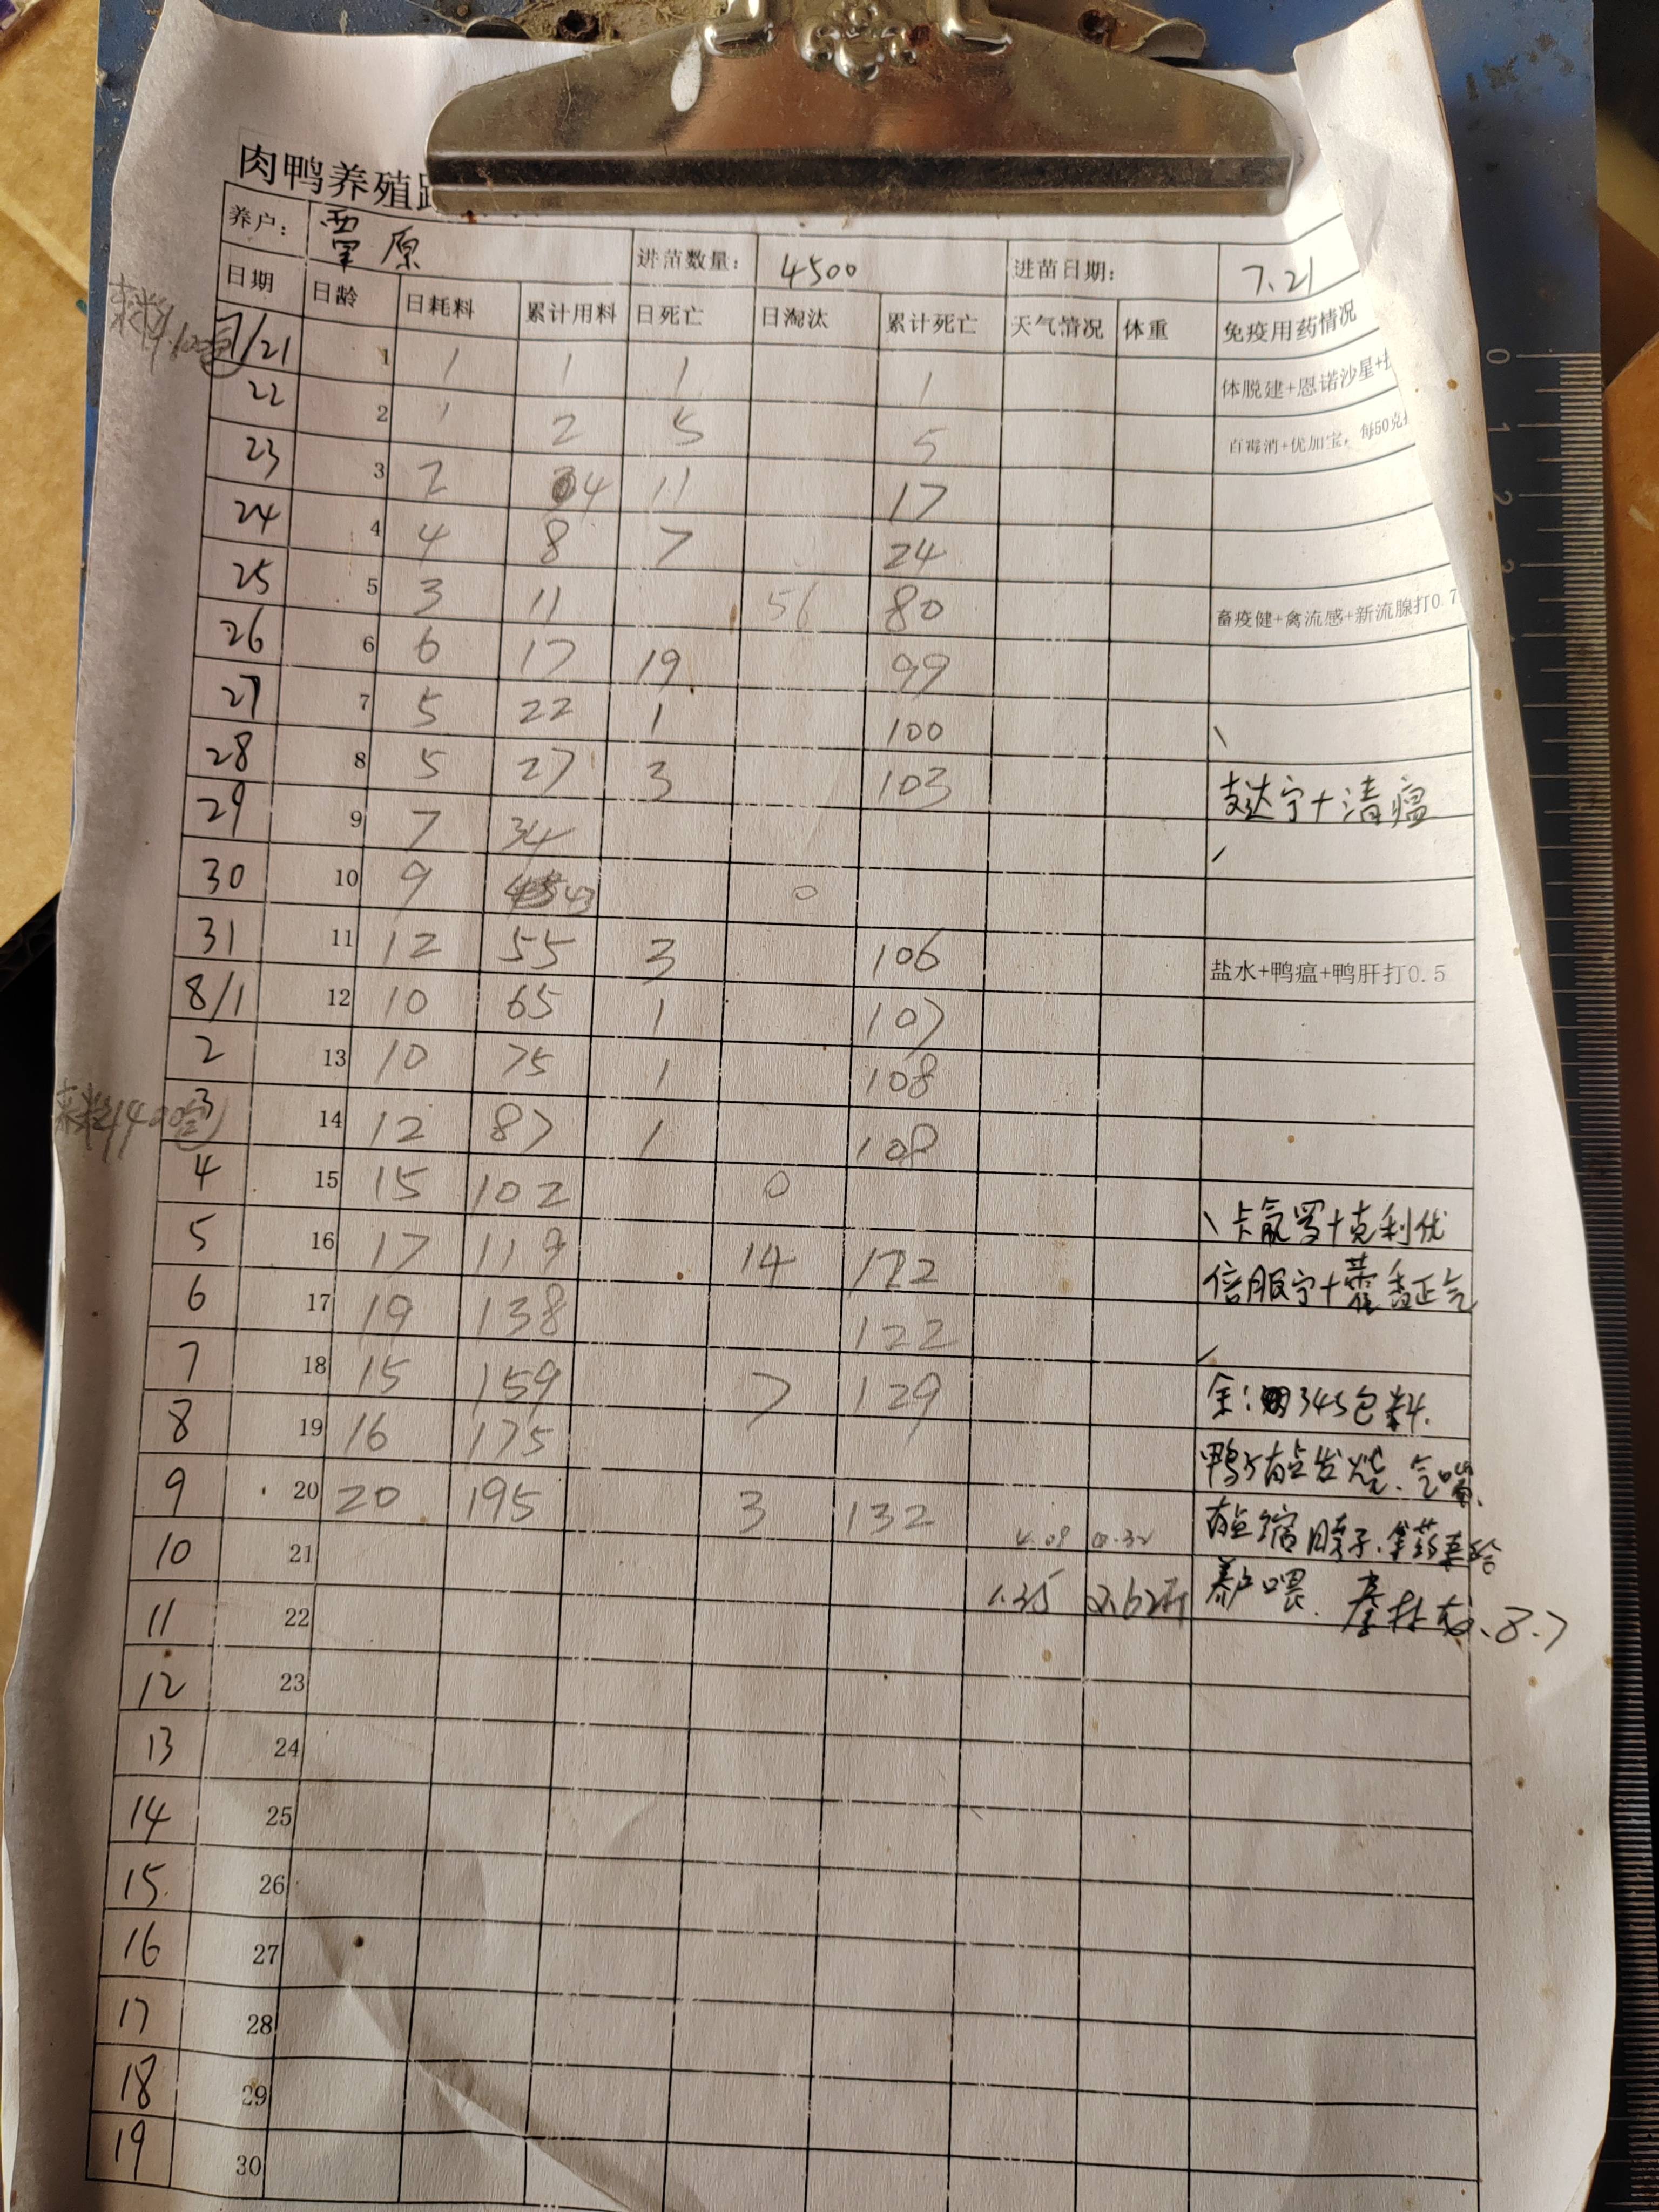 肉鸭养殖
养户： 覃原 进苗数量： 4500 进苗日期： 7.21
日期 日龄 日耗料 累计用料 日死亡 日淘汰 累计死亡 天气情况 体重 免疫用药情况
来料120包
7/21 1 1 1 1 1 体脱建+恩诺沙星+
22 2 1 2 5 5 百毒消+优加宝，每50克
23 3 2 4 11 17
24 4 4 8 7 24
25 5 3 11 56 80 畜疫健+禽流感+新流腺打0.7
26 6 6 17 19 99
27 7 5 22 1 100
28 8 5 27 3 103 支达宁+清瘟
29 9 7 34
30 10 9 43 0
31 11 12 55 3 106 盐水+鸭瘟+鸭肝打0.5
8/1 12 10 65 1 107
2 13 10 75 1 108
来料
3 14 12 87 1 108
4 15 15 102 0
5 16 17 119 14 122 信服宁+藿香正气
6 17 19 138 122
7 18 15 159 7 129 余：345包料.
8 19 16 175 鸭子有点发烧、气喘、
9 20 20 195 3 132 有点缩脖子、拿药来给
10 21 养户喂. 8.7
11 22
12 23
13 24
14 25
15 26
16 27
17 28
18 29
19 30
0
1
2
3